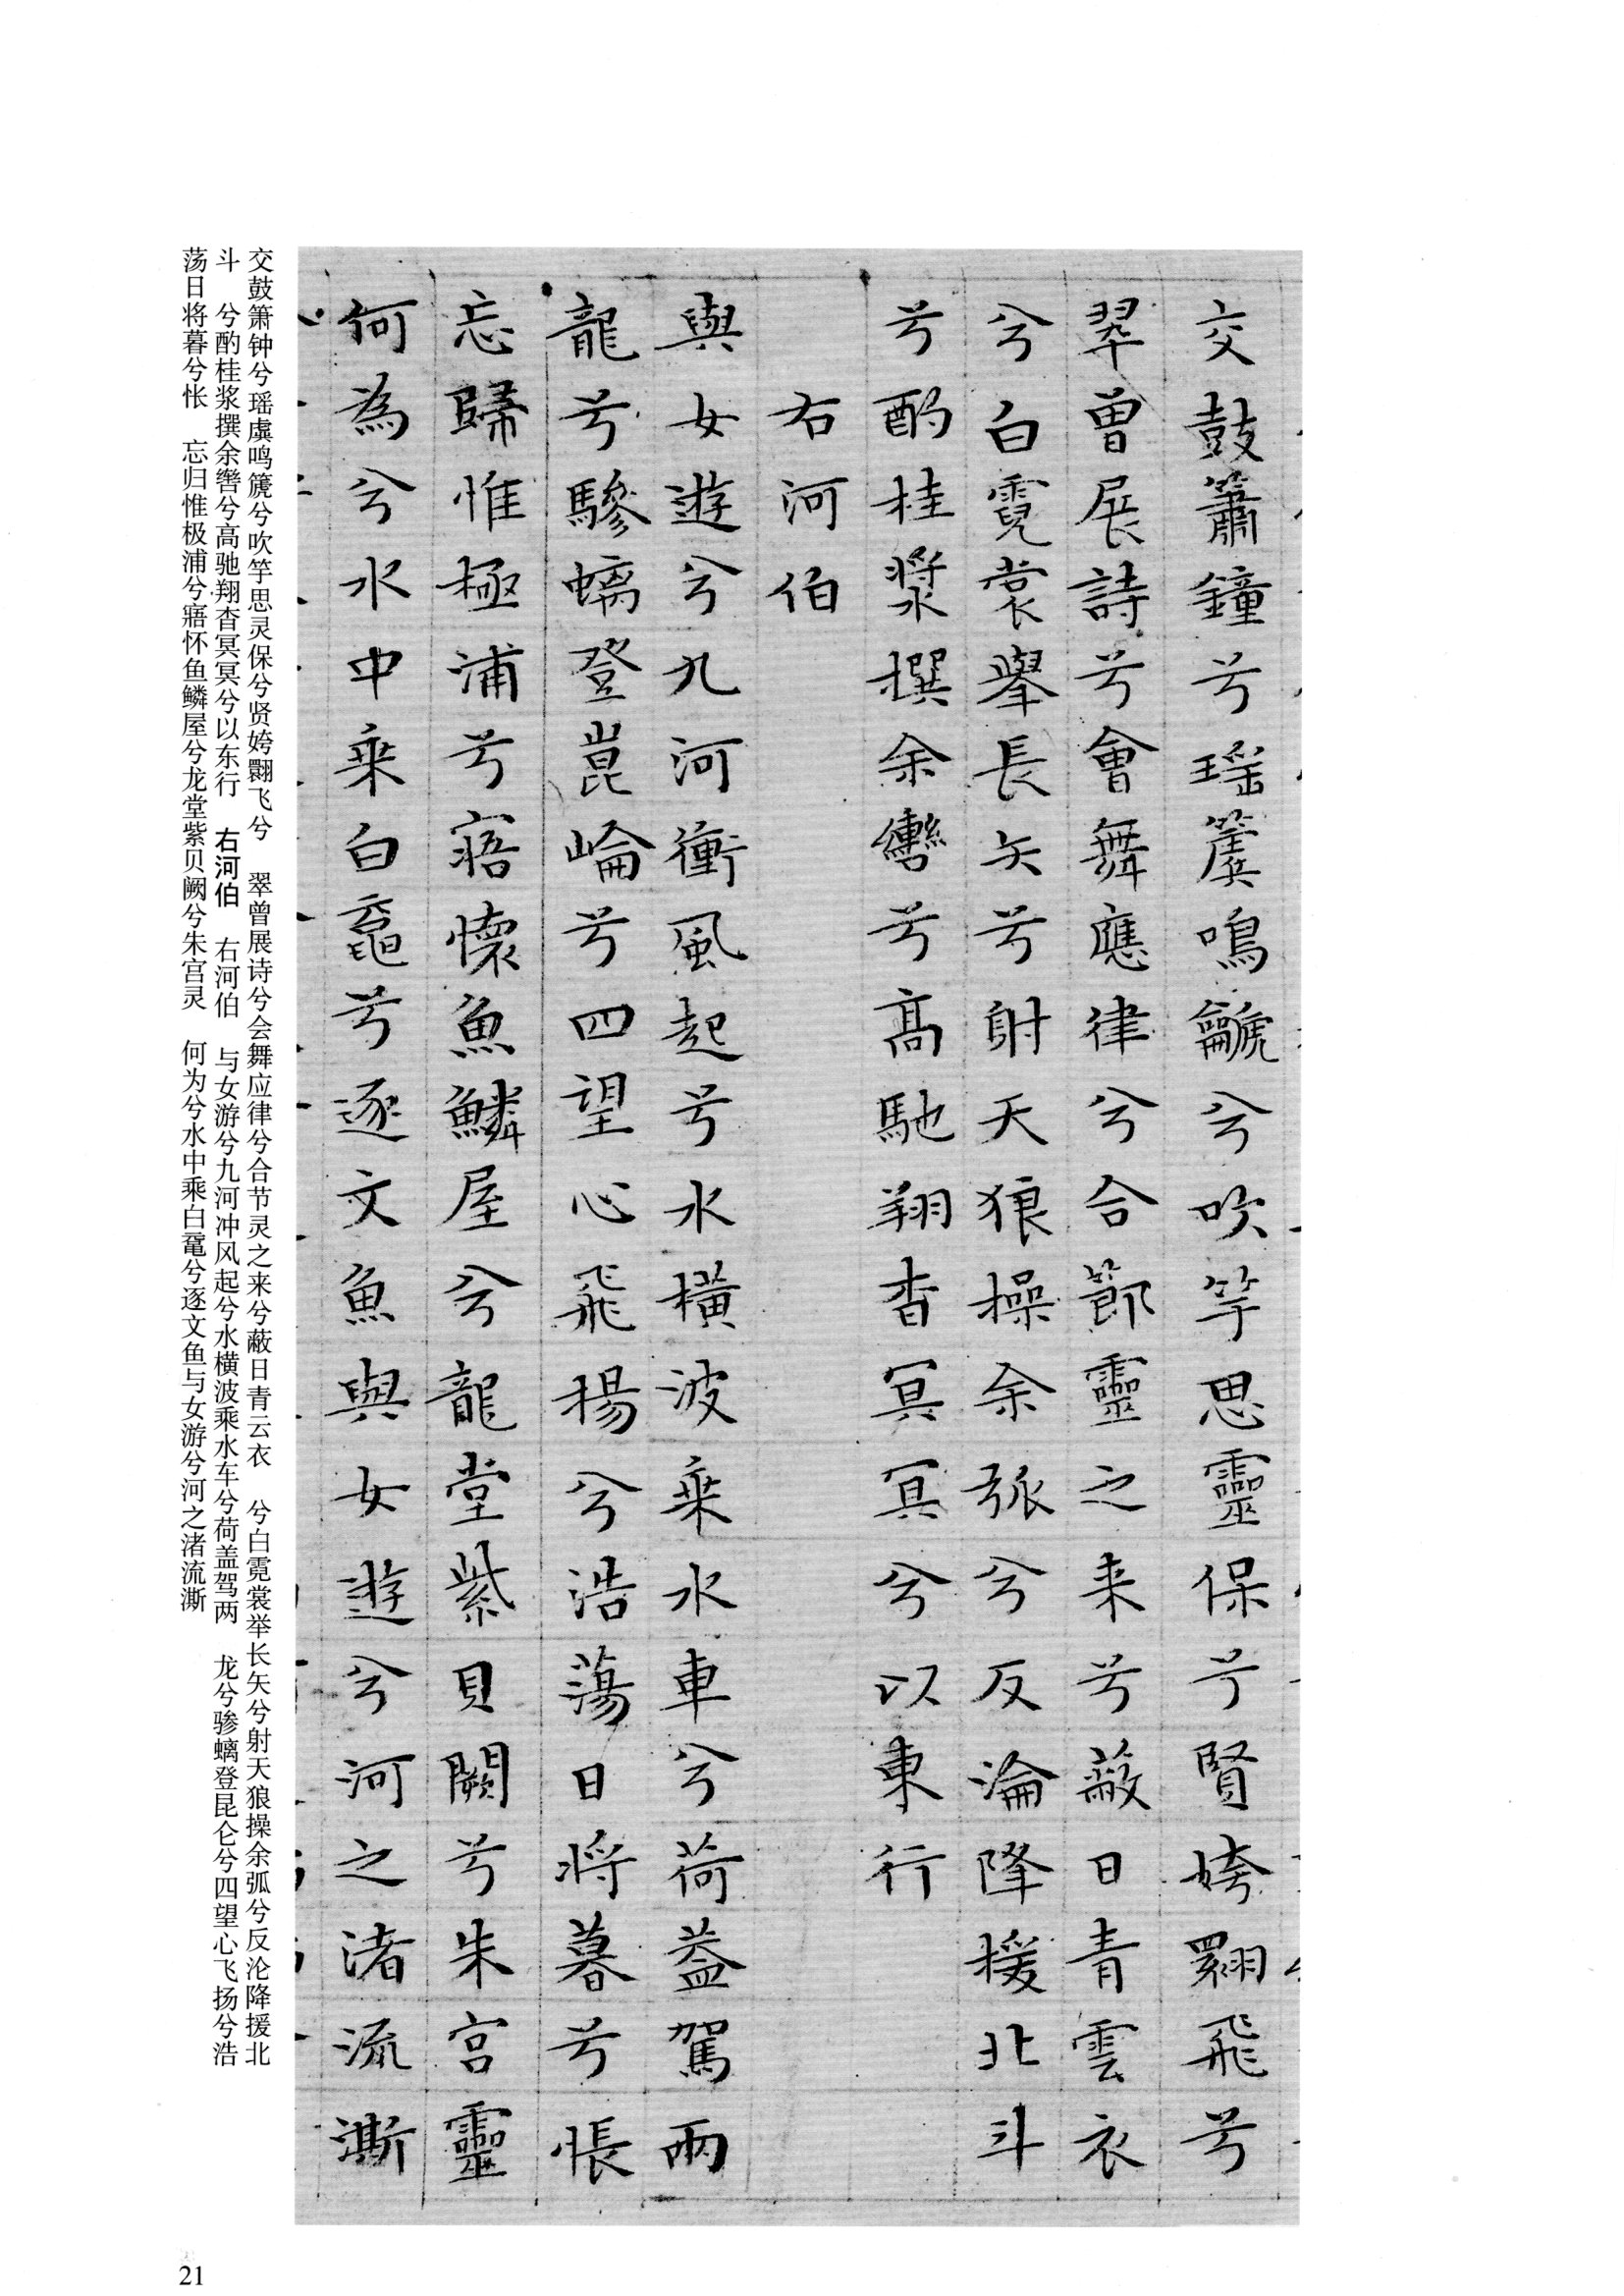 交鼓簫鐘兮瑤簴鳴鷈兮吹竽思靈保兮賢姱翾飛兮
翠曾展詩兮會舞應律兮合節靈之来兮蔽日青雲衣
兮白霓裳舉長矢兮射天狼操余弧兮反淪降援北斗
兮酌桂漿撰余轡兮高馳翔杳冥冥兮以東行
右河伯
與女遊兮九河衝風起兮水橫波乗水車兮荷蓋駕兩
龍兮驂螭登崑崘兮四望心飛揚兮浩蕩日将暮兮悵
忘歸惟極浦兮寤懷魚鱗屋兮龍堂紫貝闕兮朱宮靈
何為兮水中乗白黿兮逐文魚與女遊兮河之渚流澌
交鼓箫钟兮瑶虡鸣篪兮吹竽思灵保兮贤姱翾飞兮 翠曾展诗兮会舞应律兮合节灵之来兮蔽日青云衣 兮白霓裳举长矢兮射天狼操余弧兮反沦降援北
斗 兮酌桂浆撰余辔兮高驰翔杳冥冥兮以东行 右河伯 右河伯 与女游兮九河冲风起兮水横波乘水车兮荷盖驾两 龙兮骖螭登昆仑兮四望心飞扬兮浩
荡日将暮兮怅 忘归惟极浦兮寤怀鱼鳞屋兮龙堂紫贝阙兮朱宫灵 何为兮水中乘白鼋兮逐文鱼与女游兮河之渚流澌
21